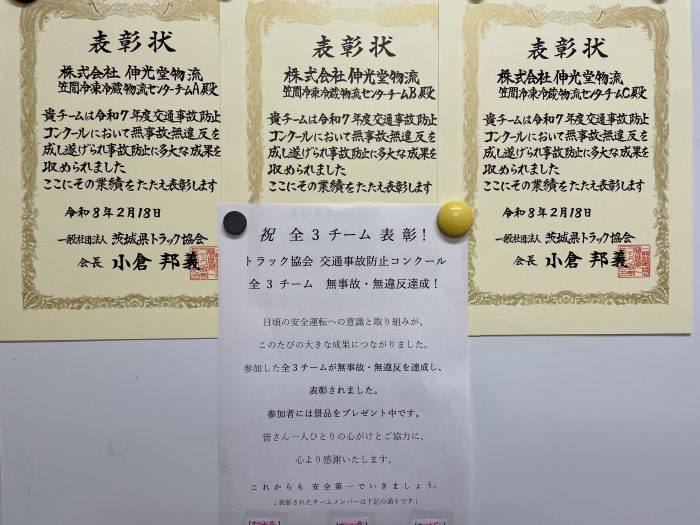 表彰状
株式会社 伸光堂物流
笠間冷凍冷蔵物流センターチームA殿
貴チームは令和7年度交通事故防止
コンクールにおいて無事故・無違反を
成し遂げられ事故防止に多大な成果を
収められました
ここにその業績をたたえ表彰します
令和8年2月18日
一般社団法人 茨城県トラック協会
会長 小倉 邦義
表彰状
株式会社 伸光堂物流
笠間冷凍冷蔵物流センターチームB殿
貴チームは令和7年度交通事故防止
コンクールにおいて無事故・無違反を
成し遂げられ事故防止に多大な成果を
収められました
ここにその業績をたたえ表彰します
表彰状
株式会社 伸光堂物流
笠間冷凍冷蔵物流センターチームC殿
貴チームは令和7年度交通事故防止
コンクールにおいて無事故・無違反を
成し遂げられ事故防止に多大な成果を
収められました
ここにその業績をたたえ表彰します
令和8年2月18日
一般社団法人 茨城県トラック協会
会長 小倉 邦義
祝 全3チーム表彰!
トラック協会 交通事故防止コンクール
全3チーム 無事故・無違反達成!
日頃の安全運転への意識と取り組みが、
このたびの大きな成果につながりました。
参加した全3チームが無事故・無違反を達成し、
表彰されました。
参加者には景品をプレゼント中です。
皆さん一人ひとりの心がけとご協力に、
心より感謝いたします。
これからも 安全第一でいきましょう。
↓表彰されたチームメンバーは下記の通りです↓